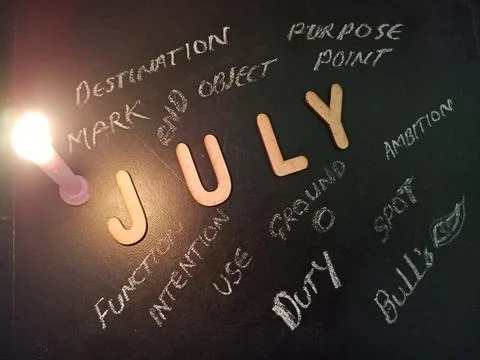 DESTINATION
PURPOSE
POINT
MARK
END
OBJECT
JULY
AMBITION
FUNCTION
INTENTION
USE
GROUND
O
DUTY
SPOT
Bull's